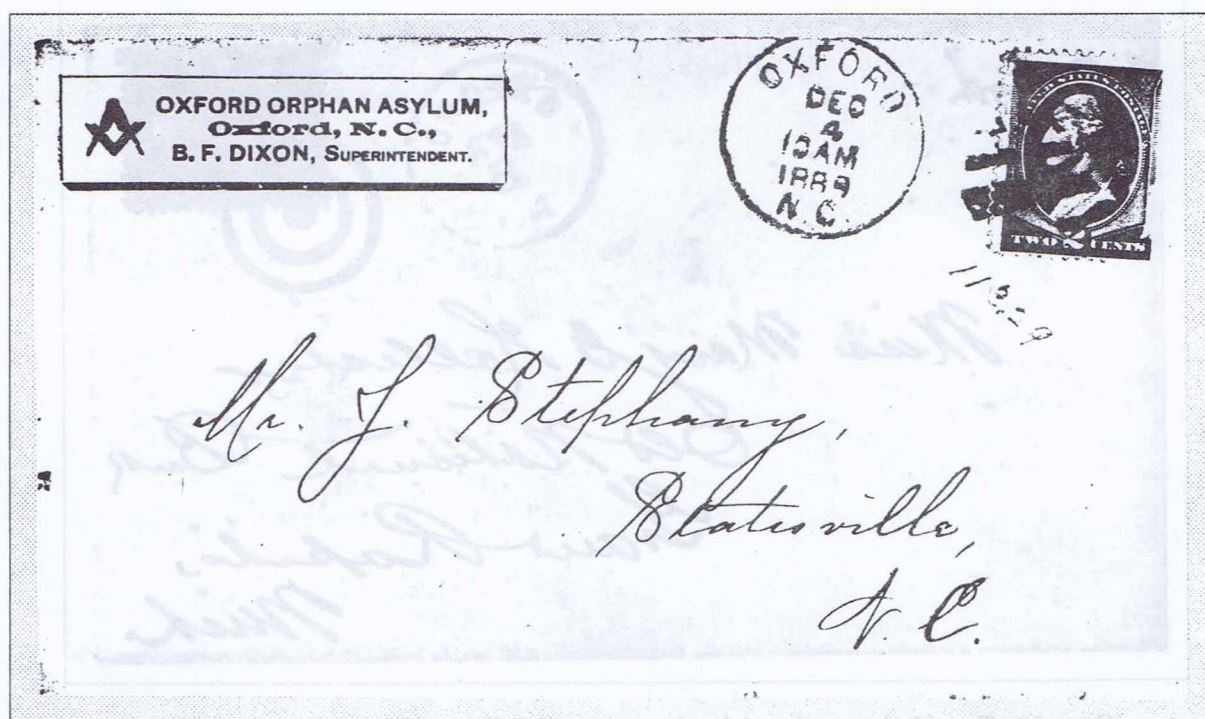 OXFORD ORPHAN ASYLUM,
Oxford, N. C.,
B. F. DIXON, SUPERINTENDENT.
OXFORD
DEC
4
10AM
1889
N. C.
UNITED STATES POSTAGE
TWO 2 CENTS
Mr. J. Stephany,
Statesville,
N. C.
Miss Mary
Mich